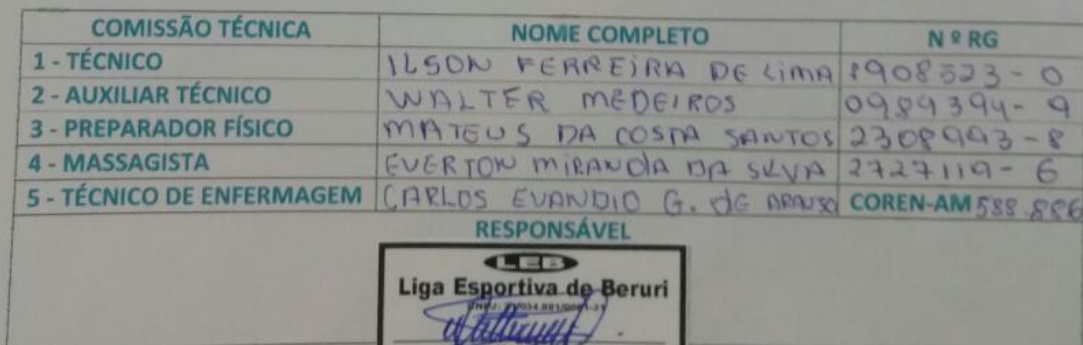 COMISSÃO TÉCNICA NOME COMPLETO Nº RG
1 - TÉCNICO ILSON FERREIRA DE LIMA 1908523-0
2 - AUXILIAR TÉCNICO WALTER MEDEIROS 0989394-9
3 - PREPARADOR FÍSICO MATEUS DA COSTA SANTOS 2308993-8
4 - MASSAGISTA EVERTON MIRANDA DA SILVA 2727119-6
5 - TÉCNICO DE ENFERMAGEM CARLOS EVANDIO G. DE ARAUSO COREN-AM 588.886
RESPONSÁVEL
LEB
Liga Esportiva de Beruri